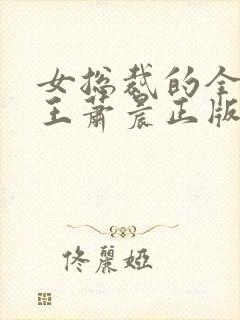 女总裁的全
王萧晨正版
佟麗婭